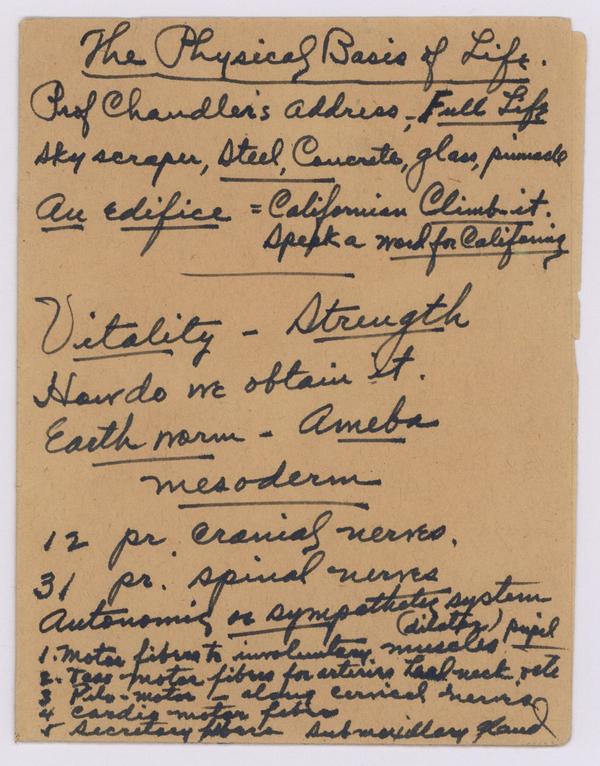 The Physical Basis of Life.
Prof Chandler's address, Full Life
Sky scraper, Steel, Concrete, glass, pinnacle
An edifice = Californian Climb it.
Speak a word for California
Vitality - Strength
How do we obtain it.
Earth worm - Ameba
mesoderm
12 pr. cranial nerves.
31 pr. spinal nerves
Autonomic or sympathetic system
(dilator) pupil
1. Motor fibres to involuntary muscles
2. motor fibres for arteries head neck, etc
3 Pilo-motor - along cervical nerves
4 Cardio motor fibres
5 Secretary fibers submaxillary gland